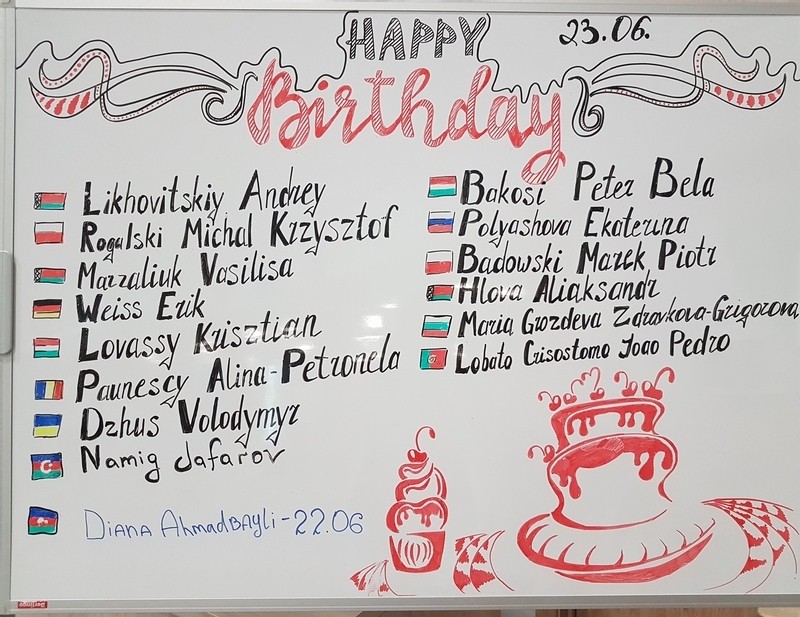 HAPPY
23.06.
Birthday
Likhovitskiy Andrey
Rogalski Michal Krzysztof
Marzaliuk Vasilisa
Weiss Erik
Lovassy Krisztian
Paunescy Alina-Petronela
Dzhus Volodymyr
Namig Jafarov
Diana AhmadBAyli-22.06
Bakosi Peter Bela
Polyashova Ekaterina
Badowski Marek Piotr
Hlova Aliaksandr
Maria Grozdeva Zdravkova-Grigorova
Lobato Crisostomo Joao Pedro